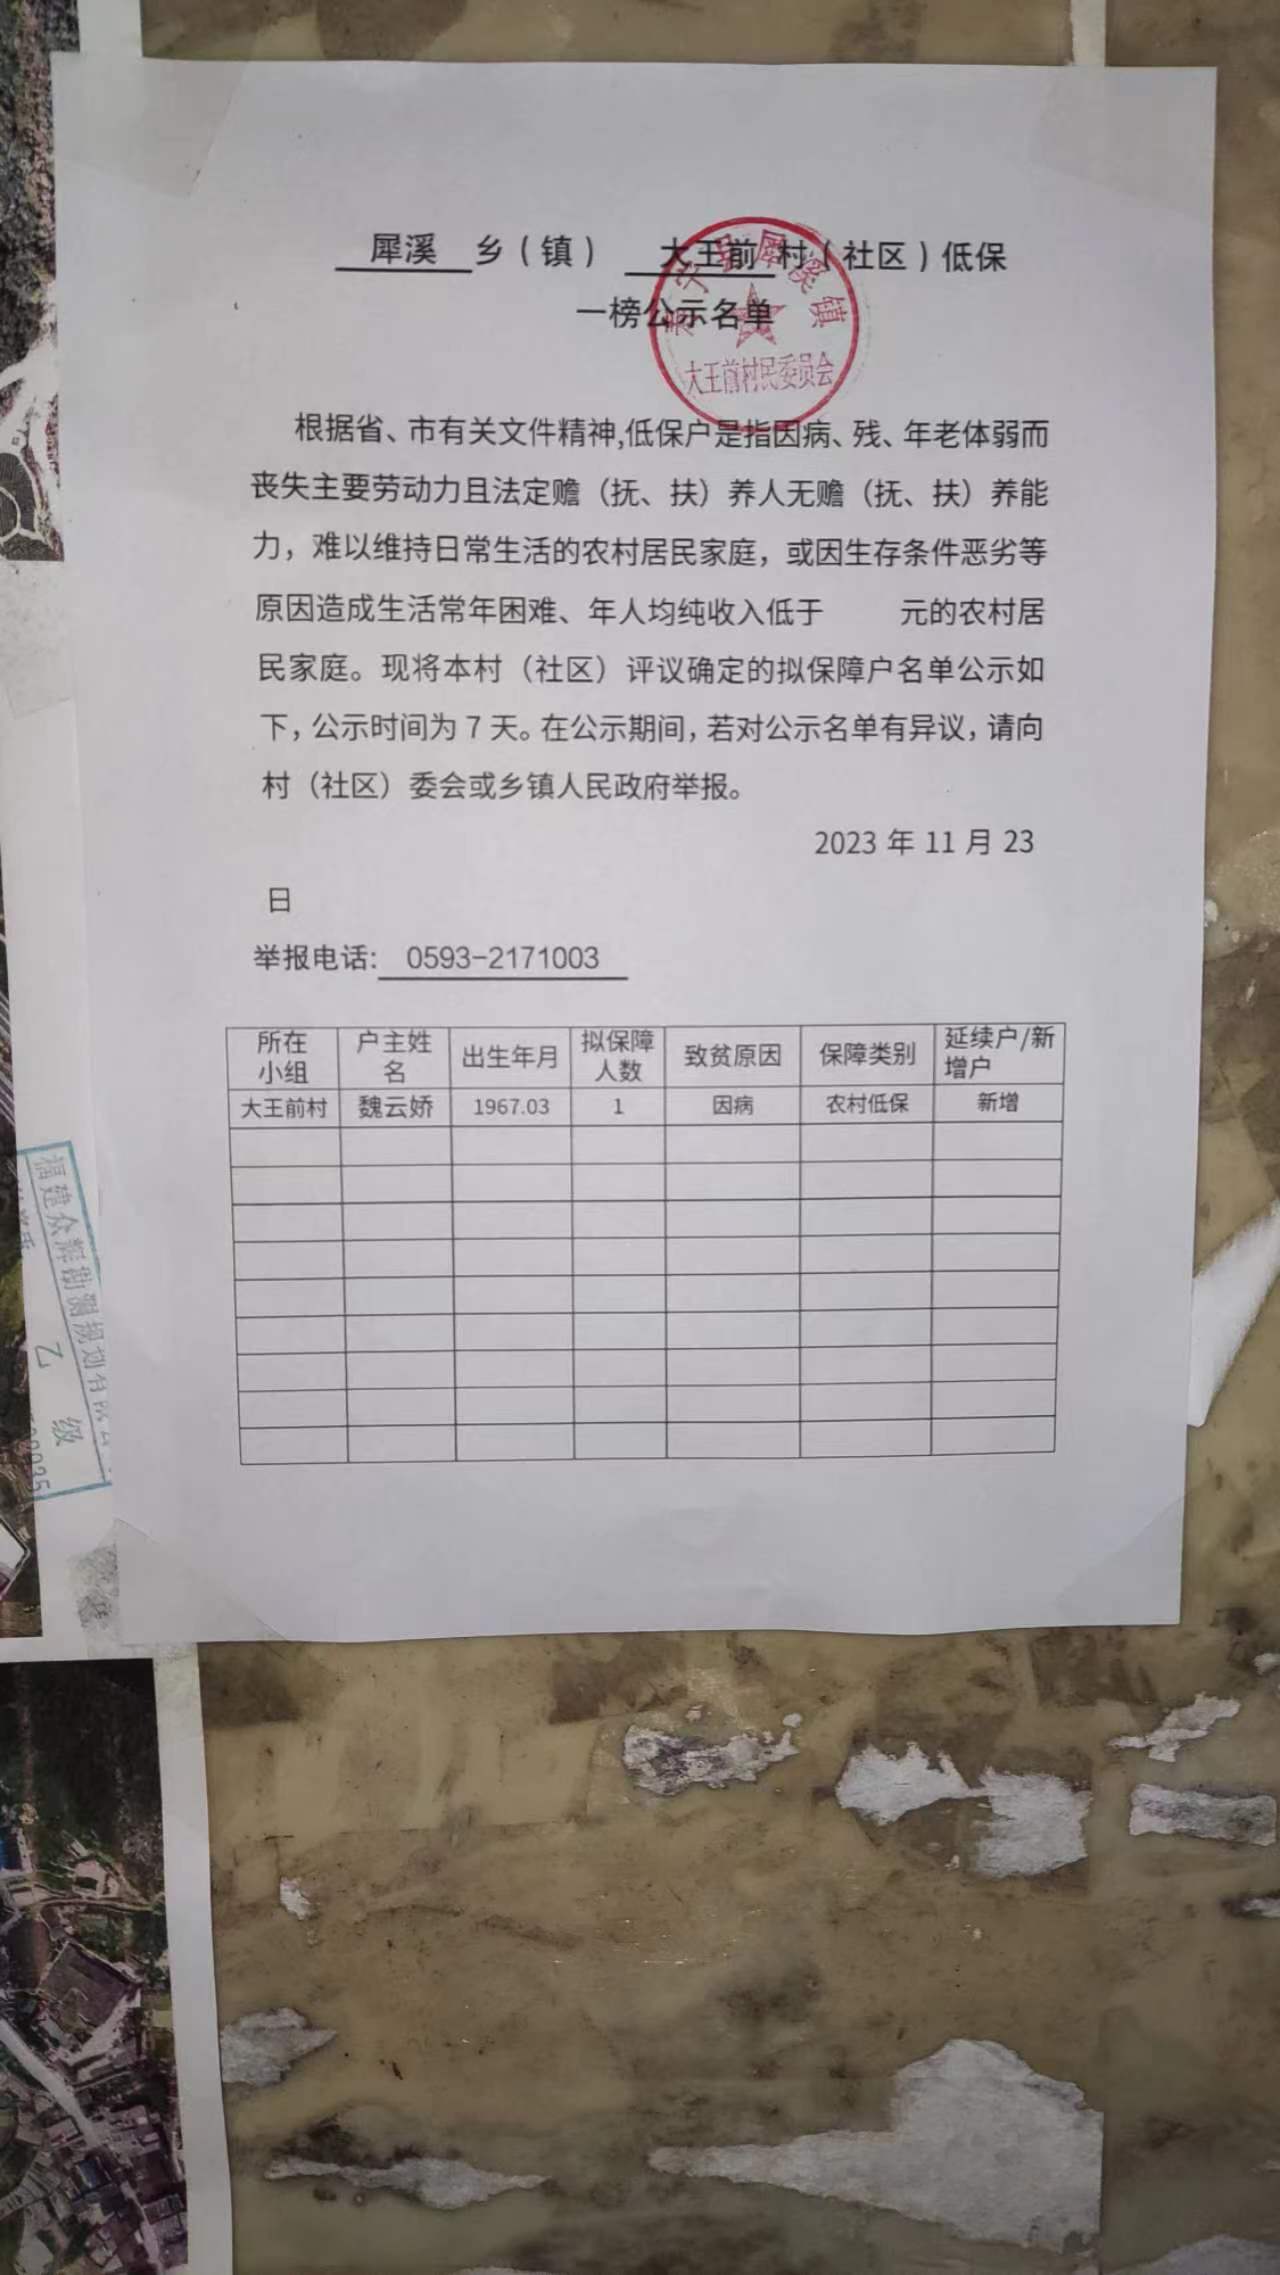 犀溪 乡（镇） 大王前 村（社区）低保
一榜公示名单
犀溪镇
大王前村民委员会
根据省、市有关文件精神,低保户是指因病、残、年老体弱而
丧失主要劳动力且法定赡（抚、扶）养人无赡（抚、扶）养能
力，难以维持日常生活的农村居民家庭，或因生存条件恶劣等
原因造成生活常年困难、年人均纯收入低于 元的农村居
民家庭。现将本村（社区）评议确定的拟保障户名单公示如
下，公示时间为 7 天。在公示期间，若对公示名单有异议，请向
村（社区）委会或乡镇人民政府举报。
2023 年 11 月 23
日
举报电话: 0593-2171003
所在小组 户主姓名 出生年月 拟保障人数 致贫原因 保障类别 延续户/新增户
大王前村 魏云娇 1967.03 1 因病 农村低保 新增
福建众辉勘测规划有限公
乙 级